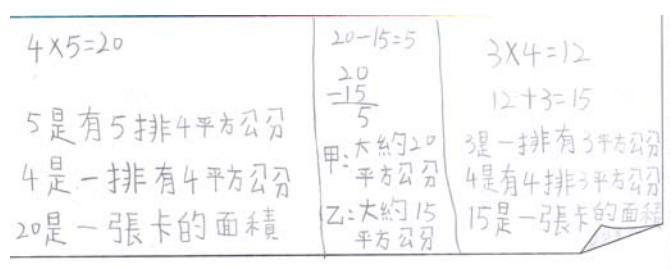 4×5=20
5是有5排4平方公分
4是一排有4平方公分
20是一張卡的面積
20-15=5
20
-15
5
甲:大約20
平方公分
乙:大約15
平方公分
3×4=12
12+3=15
3是一排有3平方公分
4是有4排3平方公分
15是一張卡的面積